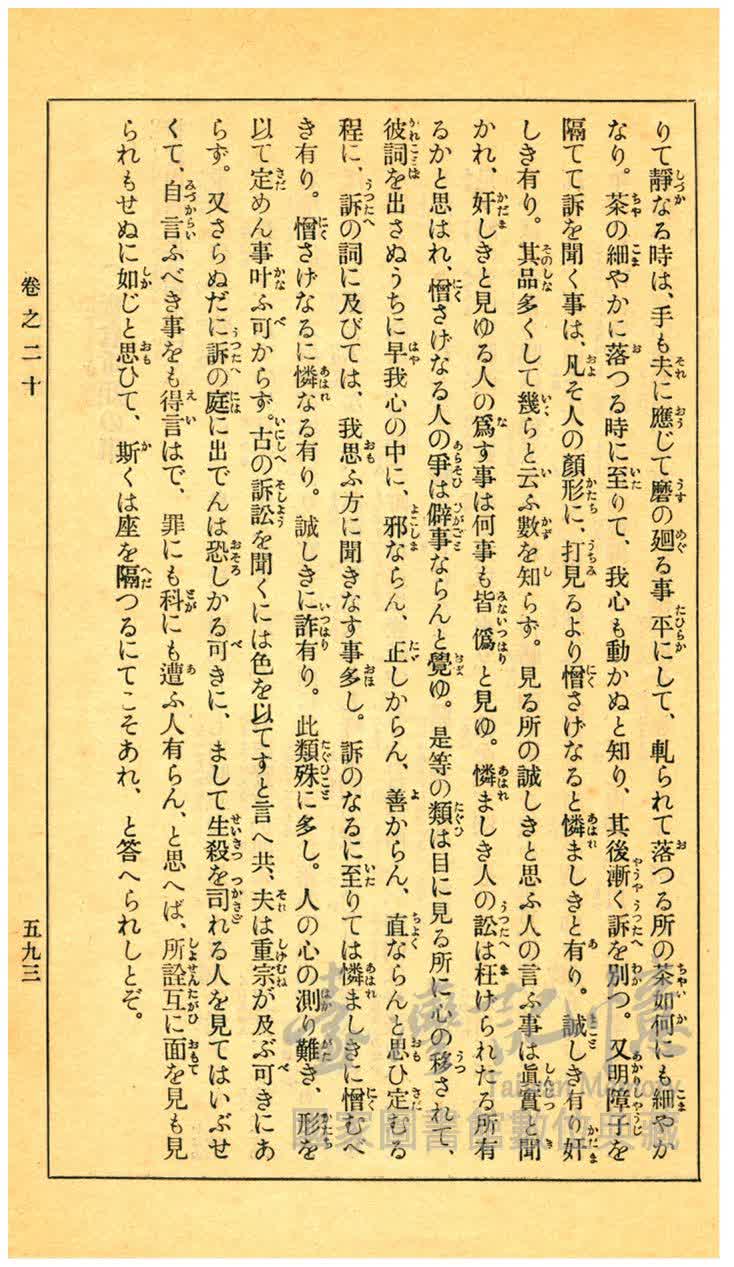 りて靜なる時は、手も夫に應じて磨の廻る事平にして、軋られて落つる所の茶如何にも細やか
なり。茶の細やかに落つる時に至りて、我心も動かぬと知り、其後漸く訴を別つ。又明障子を
隔てて訴を聞く事は、凡そ人の顏形に、打見るより憎さげなると憐ましきと有り。誠しき有り奸
しき有り。其品多くして幾らと云ふ數を知らず。見る所の誠しきと思ふ人の言ふ事は眞實と聞
かれ、奸しきと見ゆる人の爲す事は何事も皆僞と見ゆ。憐ましき人の訟は枉げられたる所有
るかと思はれ、憎さげなる人の爭は僻事ならんと覺ゆ。是等の類は目に見る所に心の移されて、
彼詞を出さぬうちに早我心の中に、邪ならん、正しからん、善からん、直ならんと思ひ定むる
程に、訴の詞に及びては、我思ふ方に聞きなす事多し。訴のなるに至りては憐ましきに憎むべ
き有り。憎さけなるに憐なる有り。誠しきに詐有り。此類殊に多し。人の心の測り難き、形を
以て定めん事叶ふ可からず。古の訴訟を聞くには色を以てすと言へ共、夫は重宗が及ぶ可きにあ
らず。又さらぬだに訴の庭に出でんは恐しかる可きに、まして生殺を司れる人を見てはいぶせ
くて、自言ふべき事をも得言はで、罪にも科にも遭ふ人有らん、と思へば、所詮互に面を見も見
られもせぬに如じと思ひて、斯くは座を隔つるにてこそあれ、と答へられしとぞ。
卷之二十
五九三
臺灣記憶
Taiwan Memory
國家圖書館數位典藏